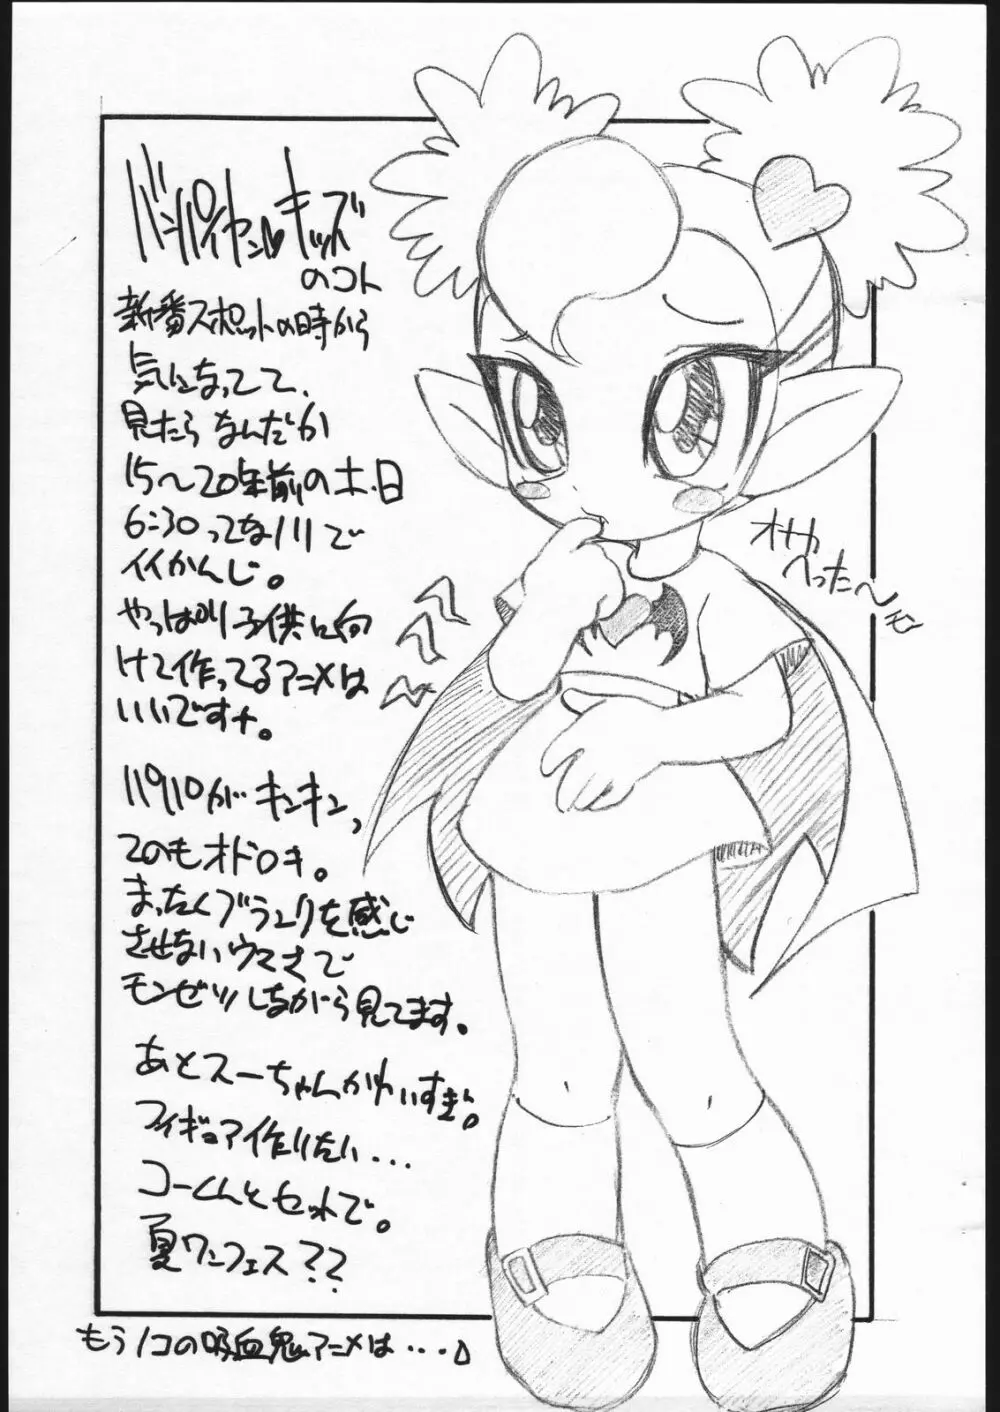 バンパイヤン♥キッズ
のコト
新番スポットの時から
気になってて、
見たらなんだか
15〜20年前の土・日
6:30ってなノリで
イイかんじ。
やっぱり子供に向
けて作ってるアニメは
いいですナ。
パロがキンキン、
てのもオドロキ。
まったくブランクを感じ
させないウマさで
モンゼツしながら見てます。
あとスーちゃんかわいすぎ。
フィギュア作りたい...
コーくんとセットで。
夏ワンフェス??
もう1コの吸血鬼アニメは・・・・
オナカ
へったへ〜